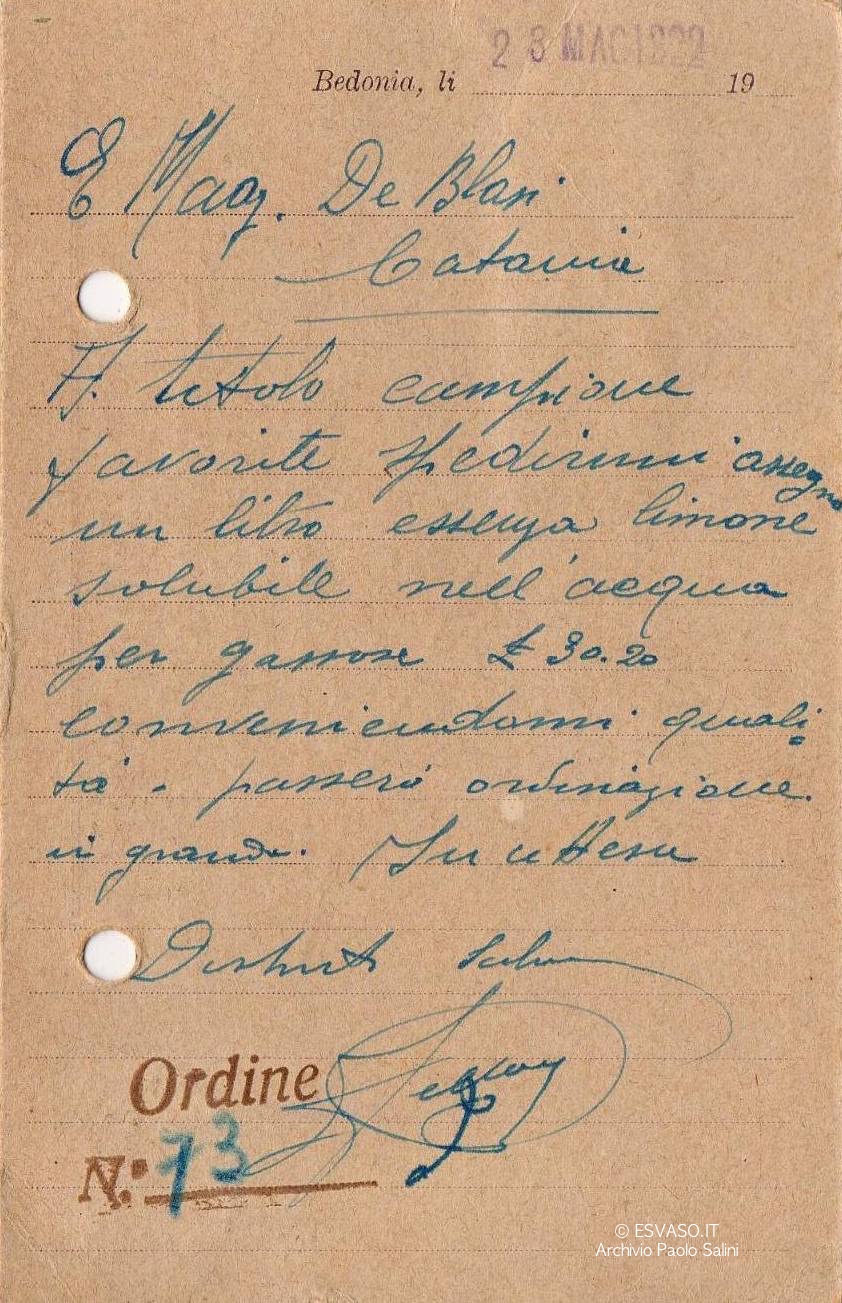 23 MAG 1922
Bedonia, li 19
E Mag. De Blasi
Catania
A titolo campione
favorite spedirmi assegno
un litro essenza limone
solubile nell'acqua
per gassose £ 30.20
conveniendomi quali
tà - passerò ordinazione
in grande. In attesa
Distinti
Ordine
N.º 73
© ESVASO.IT
Archivio Paolo Salini